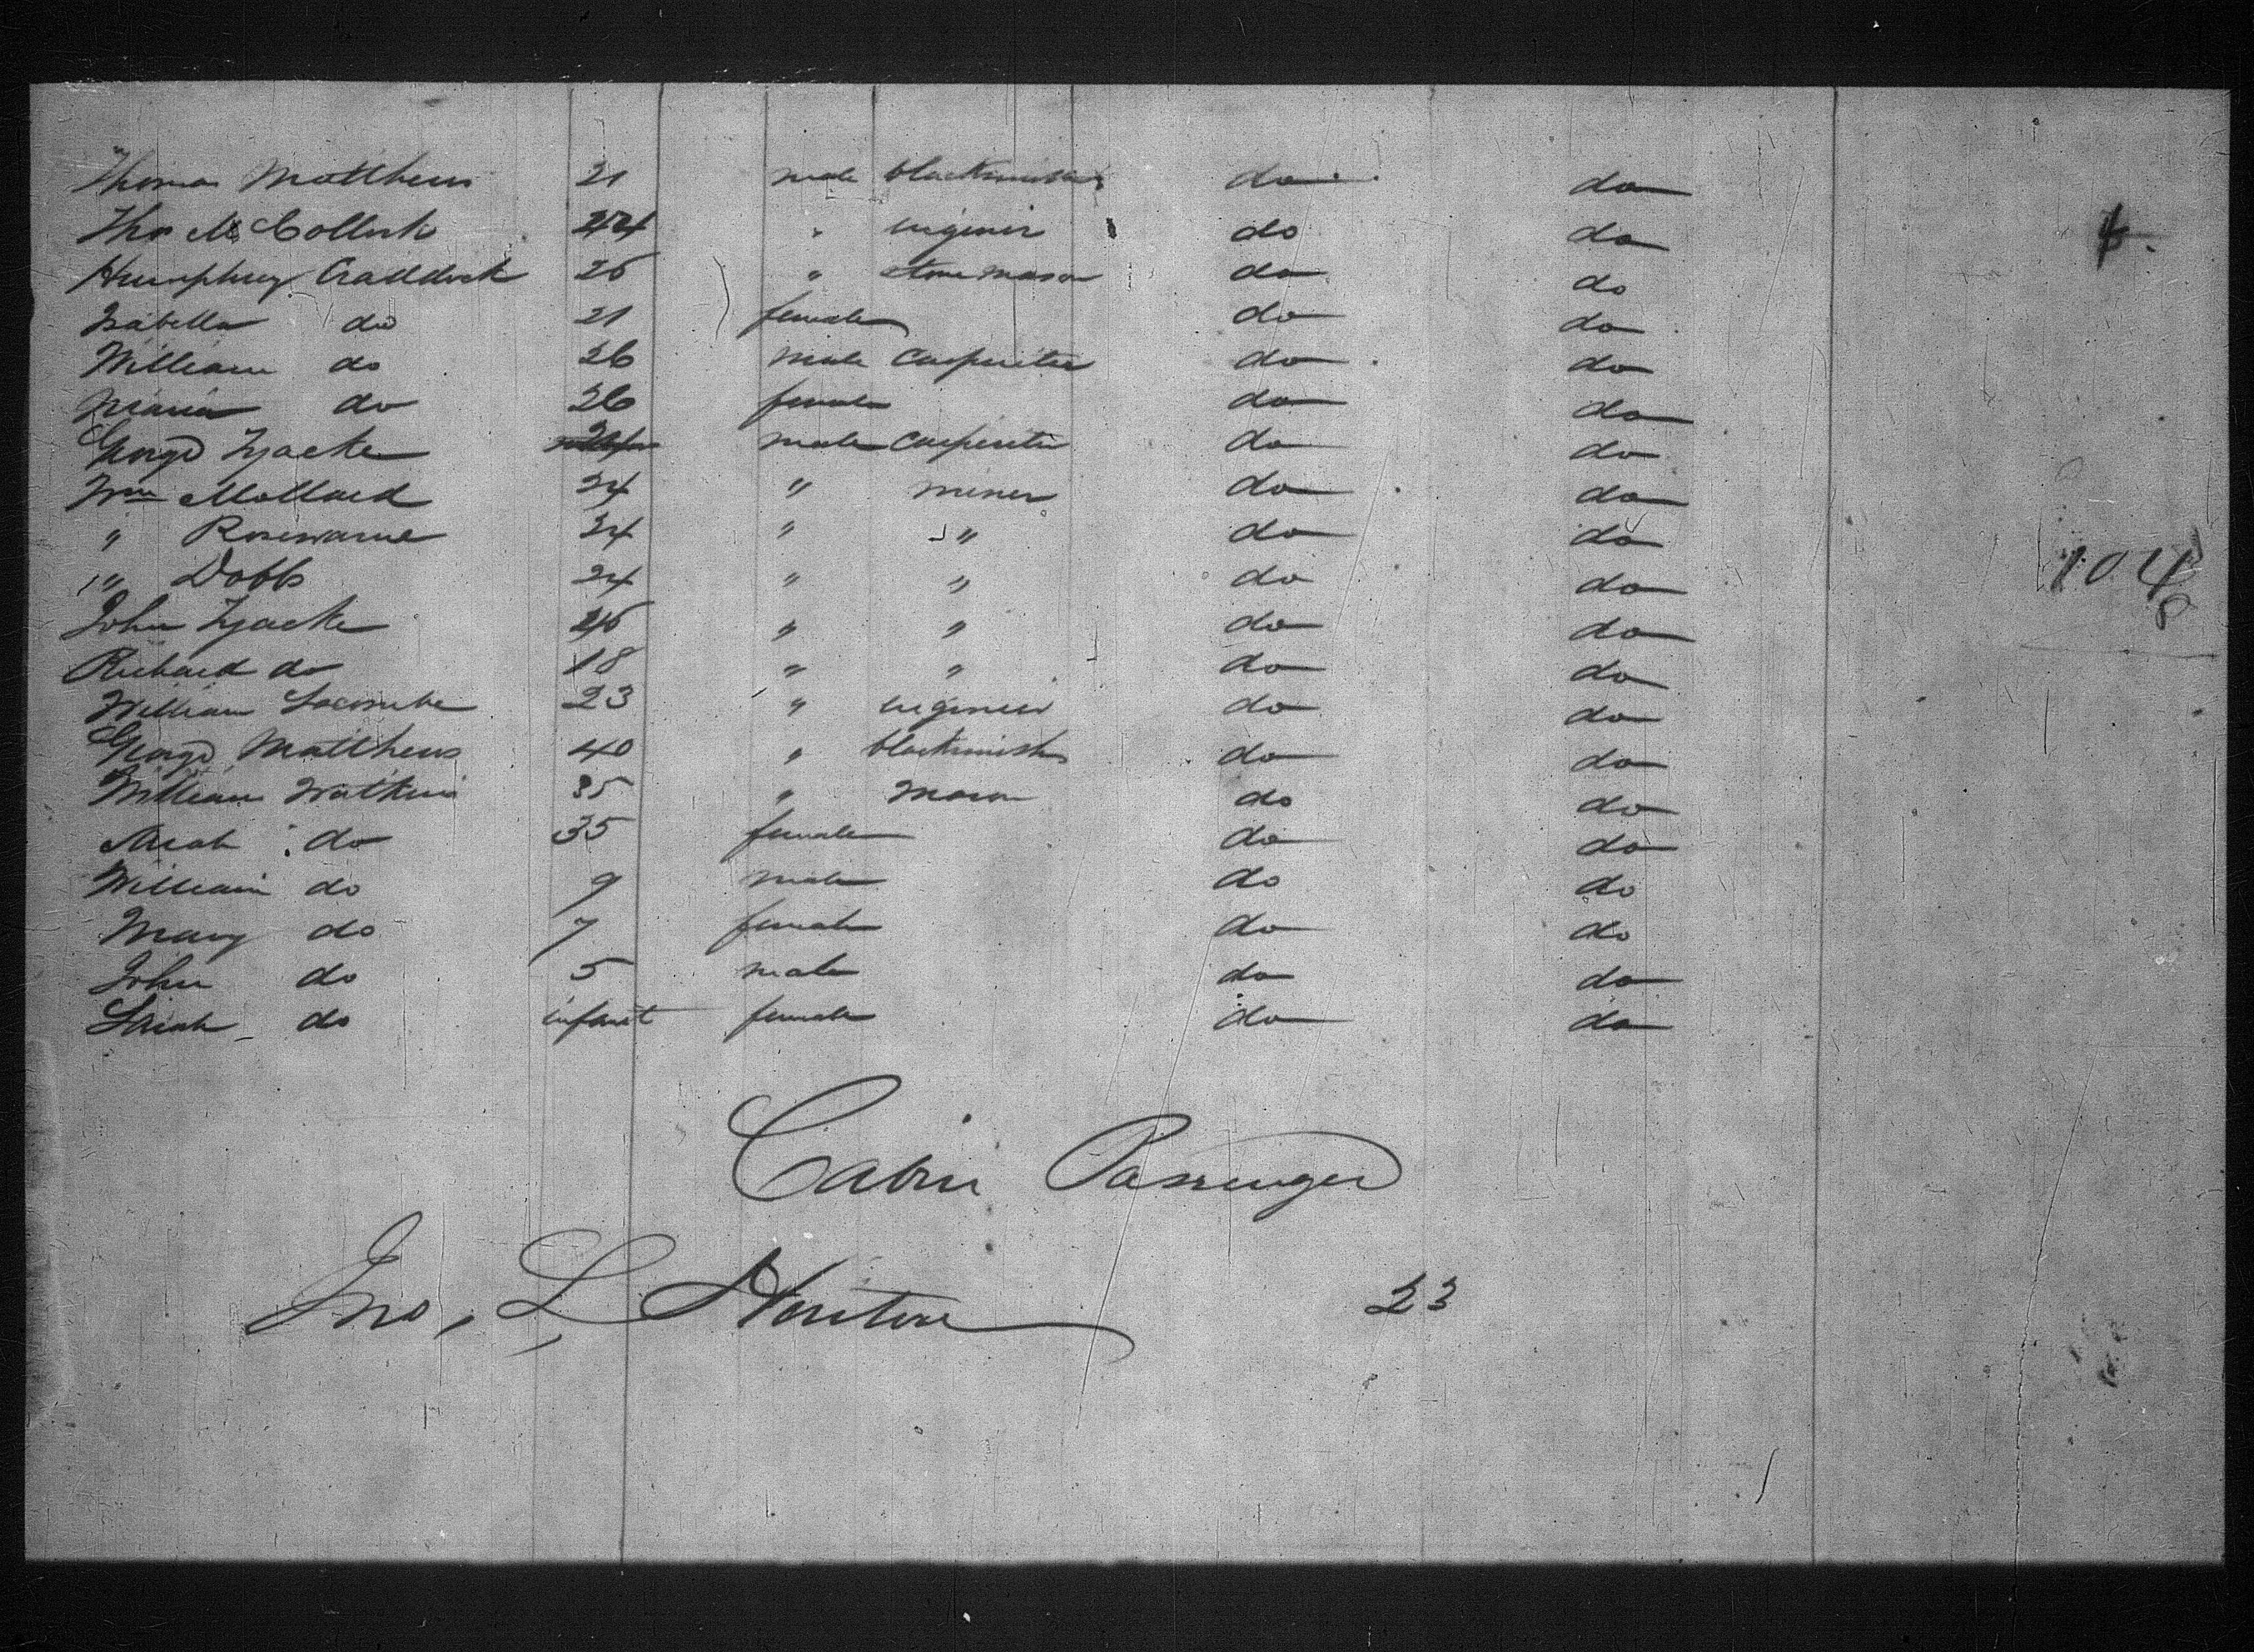 Thomas Matthews 21 male blacksmith do do
Thos McCollock 24 " engineer do do
Humphrey Craddock 25 " stone mason do do
Isabella do 21 female do do
William do 26 male carpenter do do
Maria do 26 female do do
George Tyacke male carpenter do do
Wm Mollard 24 " miner do do
" Rosewarne 24 " " do do
" Dobb 24 " " do do
John Tyacke " " do do
Richard do 18 " " do do
William 23 " engineer do do
George Matthews 40 " blacksmith do do
William Watkins 35 " mason do do
Sarah do 35 female do do
William do 9 male do do
Mary do 7 female do do
John do 5 male do do
Sarah do infant female do do
104
Cabin Passenger
Jno, L 23